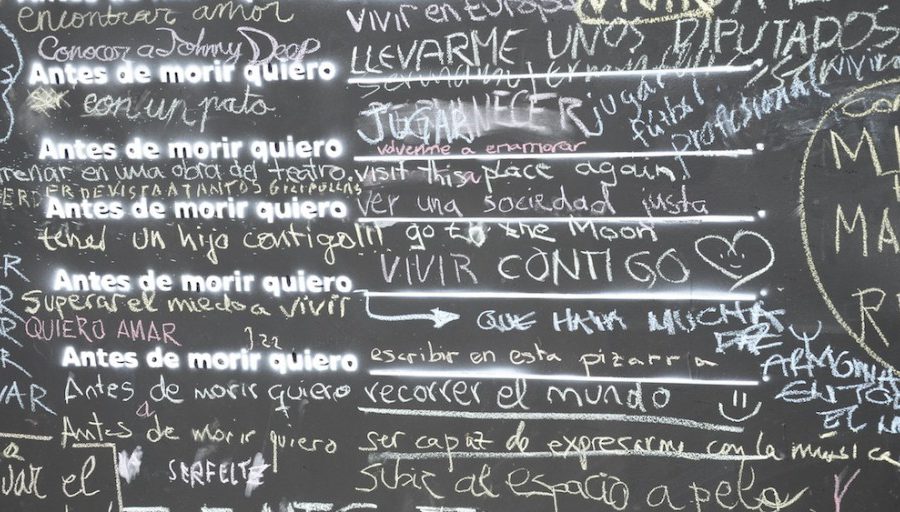 encontrar amor
vivir en Europa
VIVIR
Conocer a Johnny Deep
LLEVARME UNOS DIPUTADOS
Antes de morir quiero
con un pato
JUGAR
NECER
jugar fútbol profisional
Antes de morir quiero
volverme a enamorar
en una obra del teatro.
visit this place again!
DE VISTA A TANTOS GILIPOLLAS
Antes de morir quiero
ver una sociedad justa
tener un hijo contigo!!!
go to the Moon
VIVIR CONTIGO
Antes de morir quiero
Superar el miedo a vivir
QUE HAYA MUCHA
QUIERO AMAR
Antes de morir quiero
escribir en esta pizarra
Y
ARMONIA
EN TODO
VAR
Antes de morir quiero
recorrer el mundo
Antes de morir quiero
ser capaz de expresarme con la música
el
SERFELTE
Subir al espacio a pelo
Y